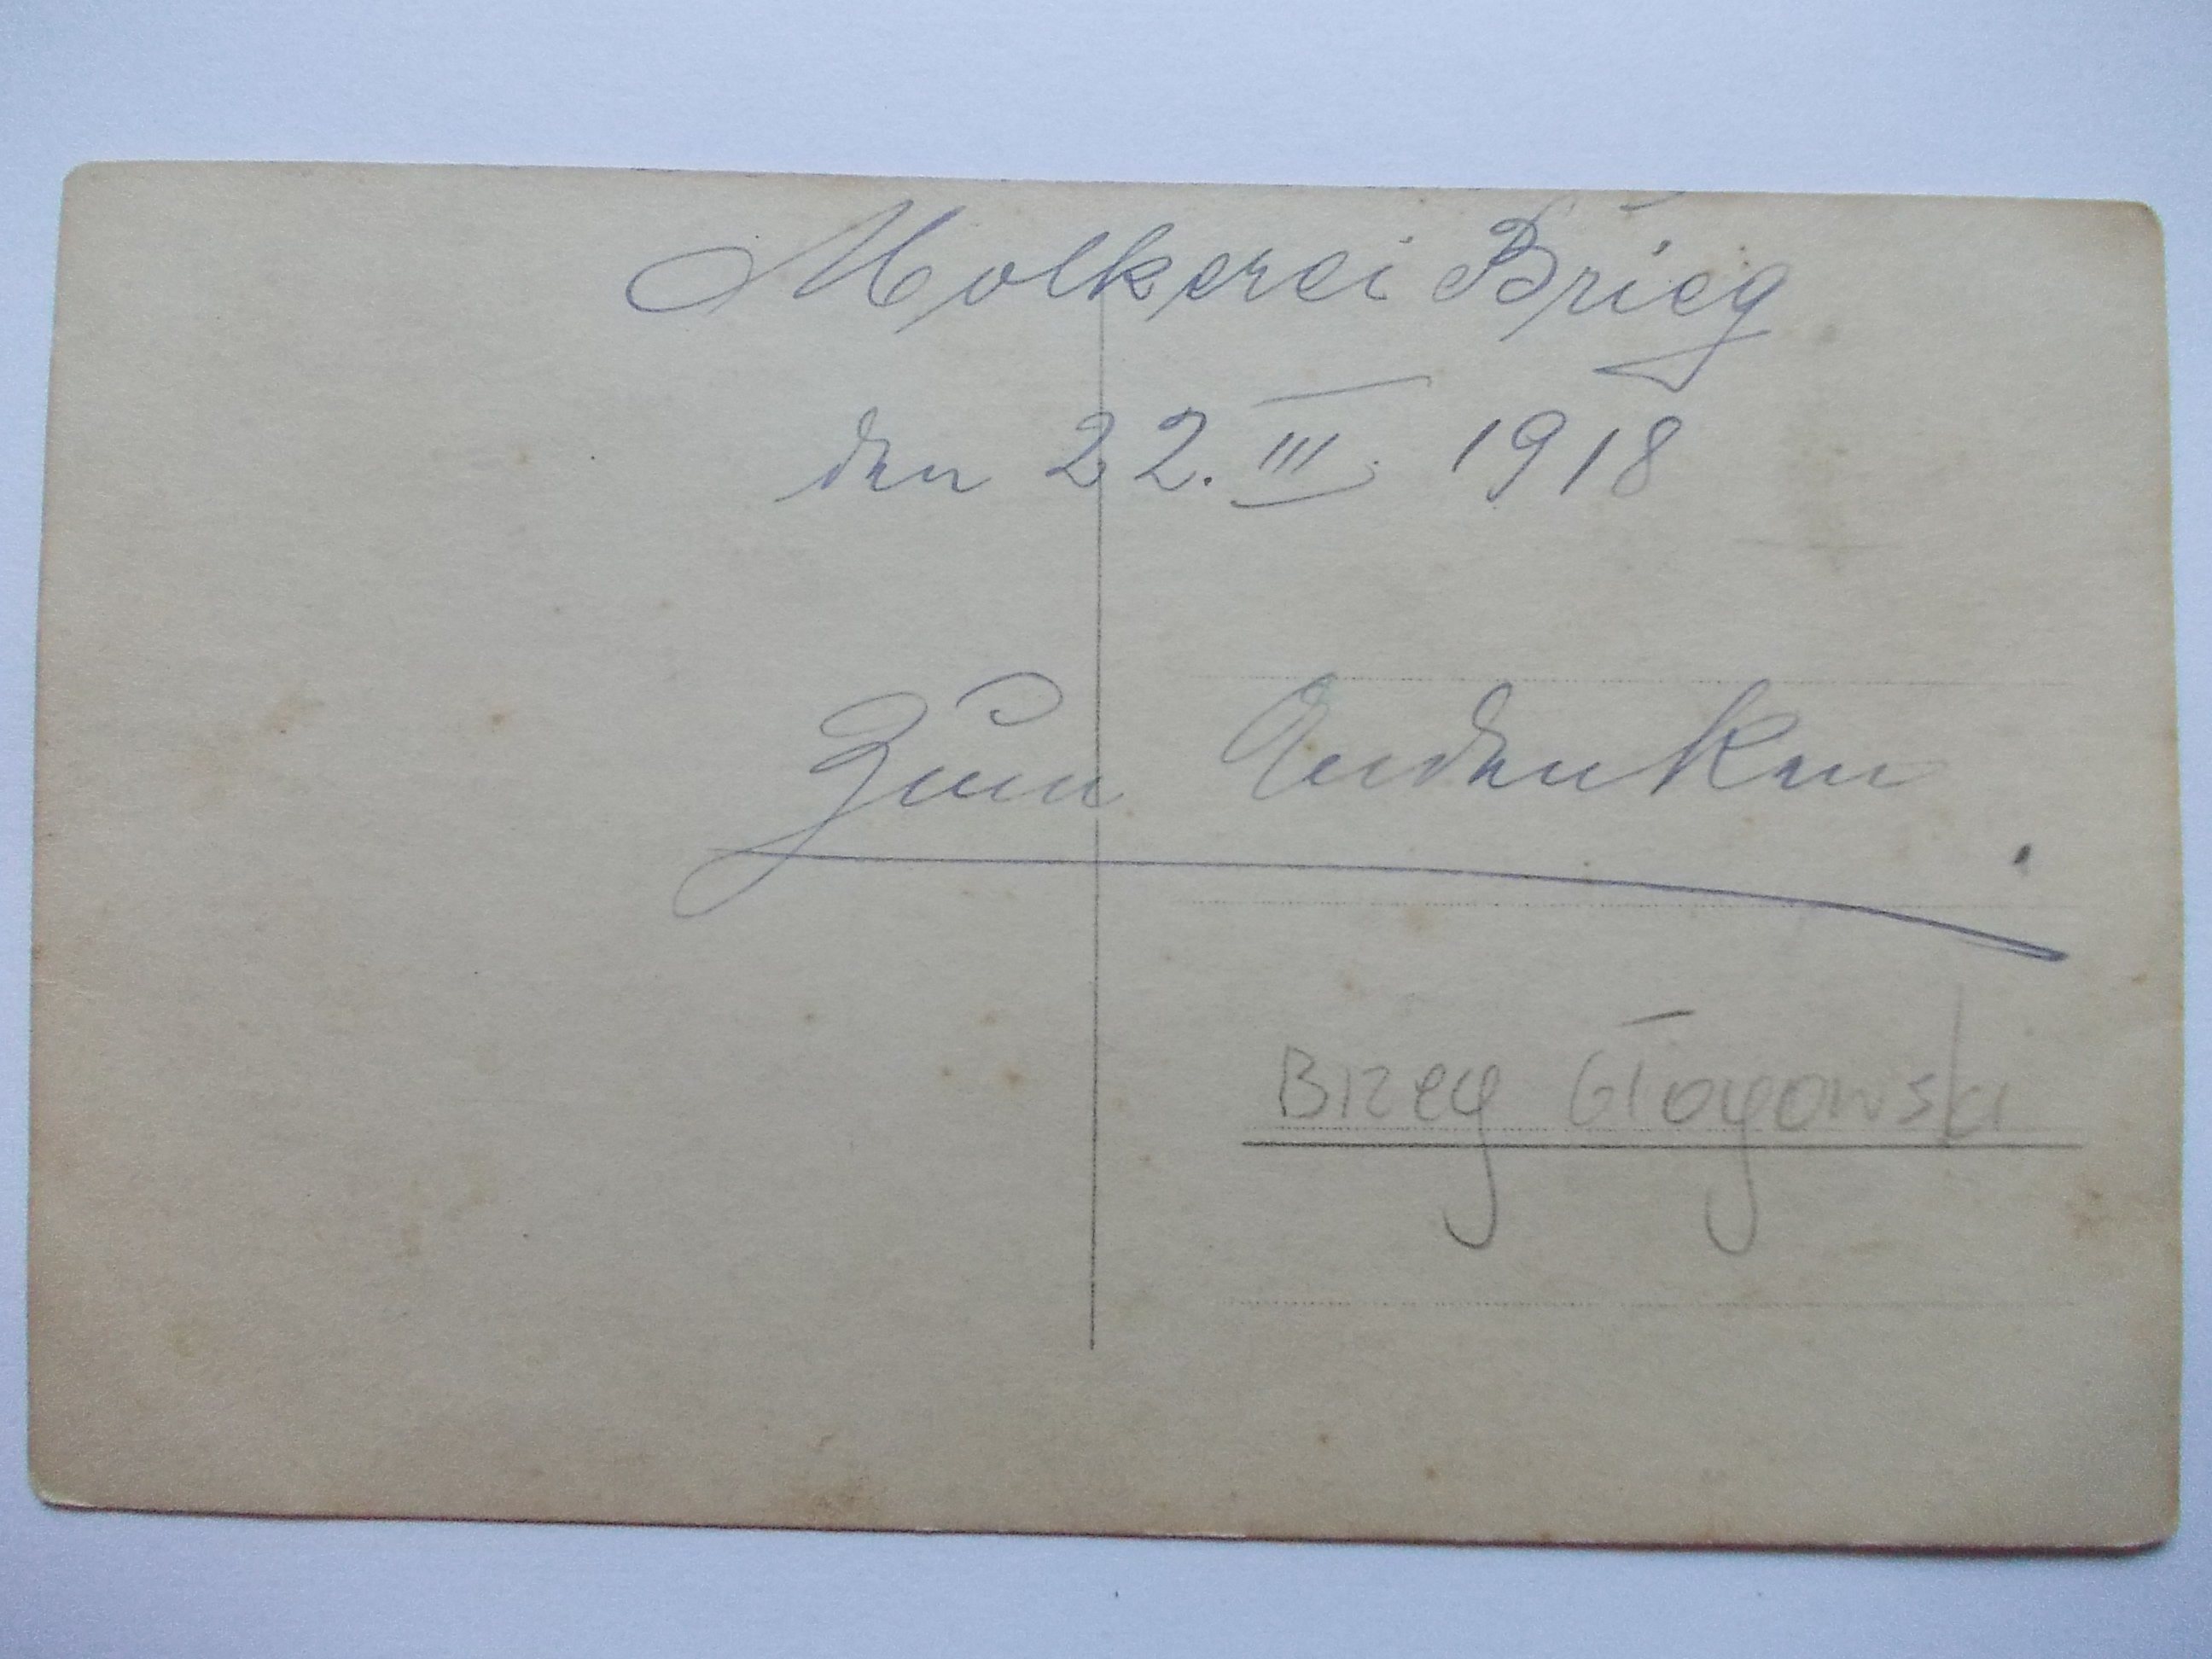 Molkerei Brieg
den 22. III. 1918
Zum Andenken
Brzeg Głogowski